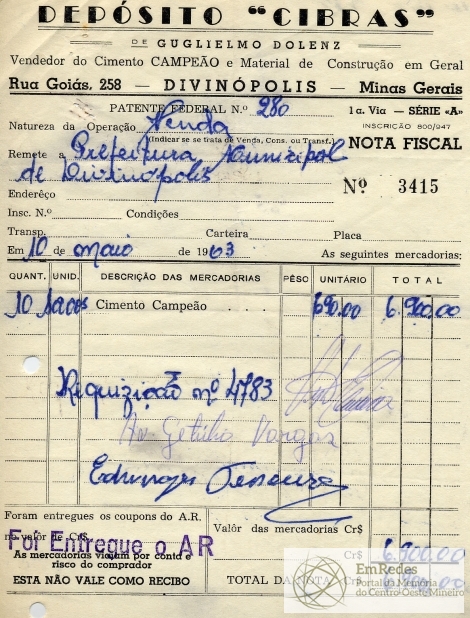 DEPÓSITO "CIBRAS"
DE GUGLIELMO DOLENZ
Vendedor do Cimento CAMPEÃO e Material de Construção em Geral
Rua Goiás, 258 — DIVINÓPOLIS — Minas Gerais
PATENTE FEDERAL N.º 280
1a. Via — SÉRIE «A»
INSCRIÇÃO 800/947
Natureza da Operação Venda
(Indicar se se trata de Venda, Cons. ou Transf.)
NOTA FISCAL
Remete a Prefeitura Municipal
de Divinópolis
Nº 3415
Enderêço
Insc. N.º Condições
Transp. Carteira Placa
Em 10 de maio de 1963 As seguintes mercadorias:
QUANT. UNID. DESCRIÇÃO DAS MERCADORIAS PÊSO UNITÁRIO TOTAL
10 sacos Cimento Campeão . . . 690,00 6.900,00
Riquizição nº 4783
Av Getúlio Vargas
Foram entregues os coupons do A.R.
no valor de Cr$
Foi Entregue o AR
As mercadorias viajam por conta e
risco do comprador
ESTA NÃO VALE COMO RECIBO
Valor das mercadorias Cr$
Cr$ 6.900,00
TOTAL DA NOTA Cr$
EmRedes
Portal da Memória
do Centro-Oeste Mineiro